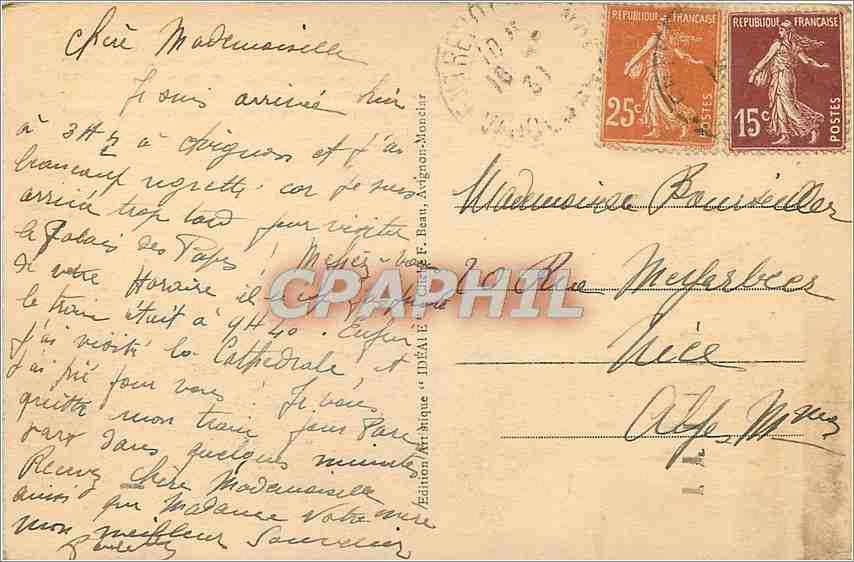 Chère Mademoiselle
Je suis arrivée hier
à 3H ½ à Avignon et j'ai
beaucoup regretté car je suis
arrivée trop tard pour visiter
le Palais des Papes ! Mefiez-vous
de votre Horaire il
le train était à 9H40. Enfin
j'ai visité la Cathedrale et
j'ai prié pour vous ! Je vous
quitte mon train pour Paris
part dans quelques minutes
Recevez chère Mademoiselle
ainsi que Madame votre mère
mon meilleur Souvenir
Edition Artistique "IDÉALE" Cliché F. Beau, Avignon-Monclar
REPUBLIQUE FRANÇAISE
25c
POSTES
REPUBLIQUE FRANÇAISE
15c
POSTES
Mademoiselle
20 Rue Meyerbeer
Nice
Alpes Mmes
CPAPHIL